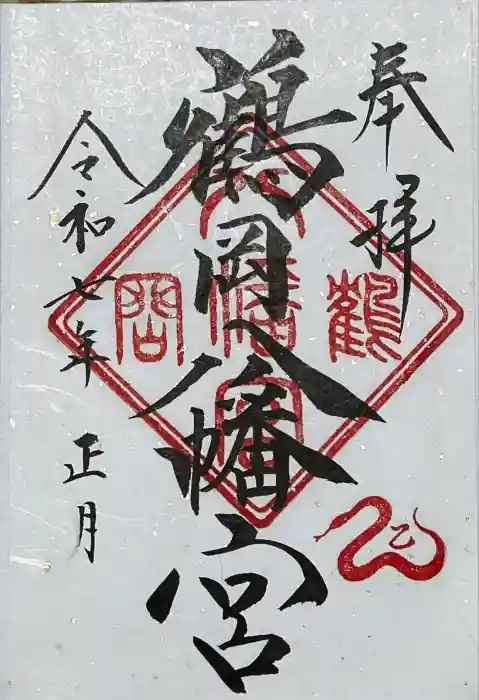 奉拝
鶴岡八幡宮
令和七年 正月
鶴
八
幡
岡
宮
乙